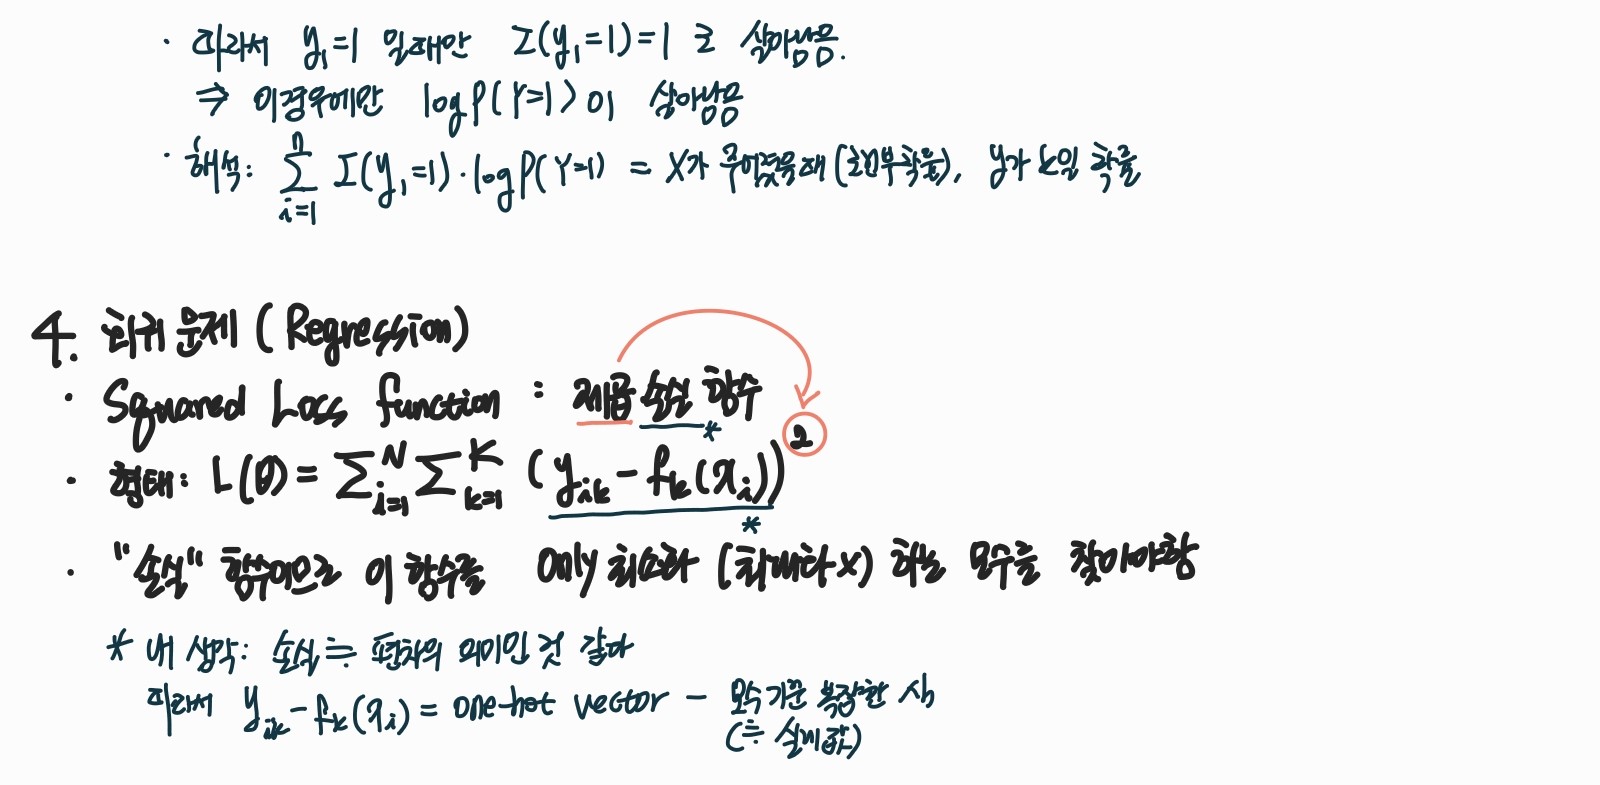 · 따라서 y₁=1 일때만 I(y₁=1)=1 로 살아남음.
⇒ 이경우에만 log P(Y=1)이 살아남음
· 해석: ∑ⁿᵢ₌₁ I(y₁=1)·log P(Y=1) = X가 주어졌을때 (조건부확률), y가 k일 확률
4. 회귀 문제 (Regression)
· Squared Loss function : 제곱 손실 함수
*
· 형태: L(θ) = ∑ᴺᵢ₌₁ ∑ᴷₖ₌₁ (yᵢₖ - fₖ(xᵢ))²
*
· "손실" 함수이므로 이 함수를 only 최소화 (최대화x) 하는 모수를 찾아야함
* 내 생각: 손실 ≒ 편차의 의미인 것 같다
따라서 yᵢₖ - fₖ(xᵢ) = one-hot vector - 모수 기준 복잡한 식
(≒ 실제값)